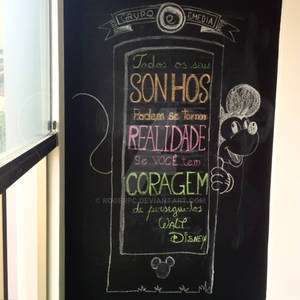 GRUPO e EMEDIA
Todos os seu
SONHOS
Podem se tornar
REALIDADE
Se VOCÊ tem
CORAGEM
de persegui-los
WALT
DISNEY
© ROGERFC.DEVIANTART.COM